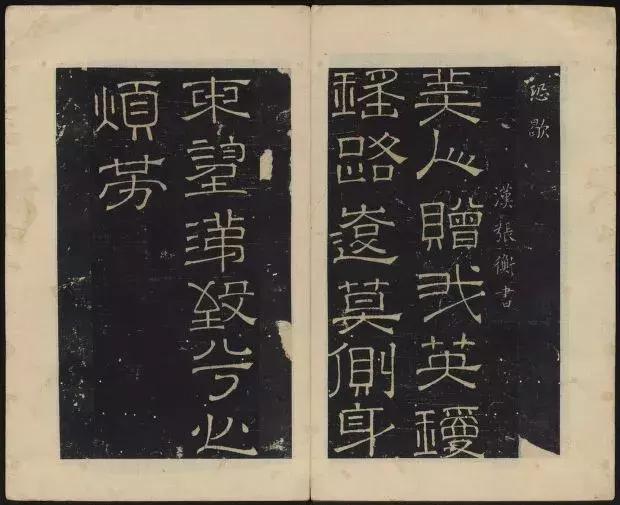 恐歌
漢張衡書
美人贈我英瓊
瑤路遠莫側身
東望兮心
煩勞